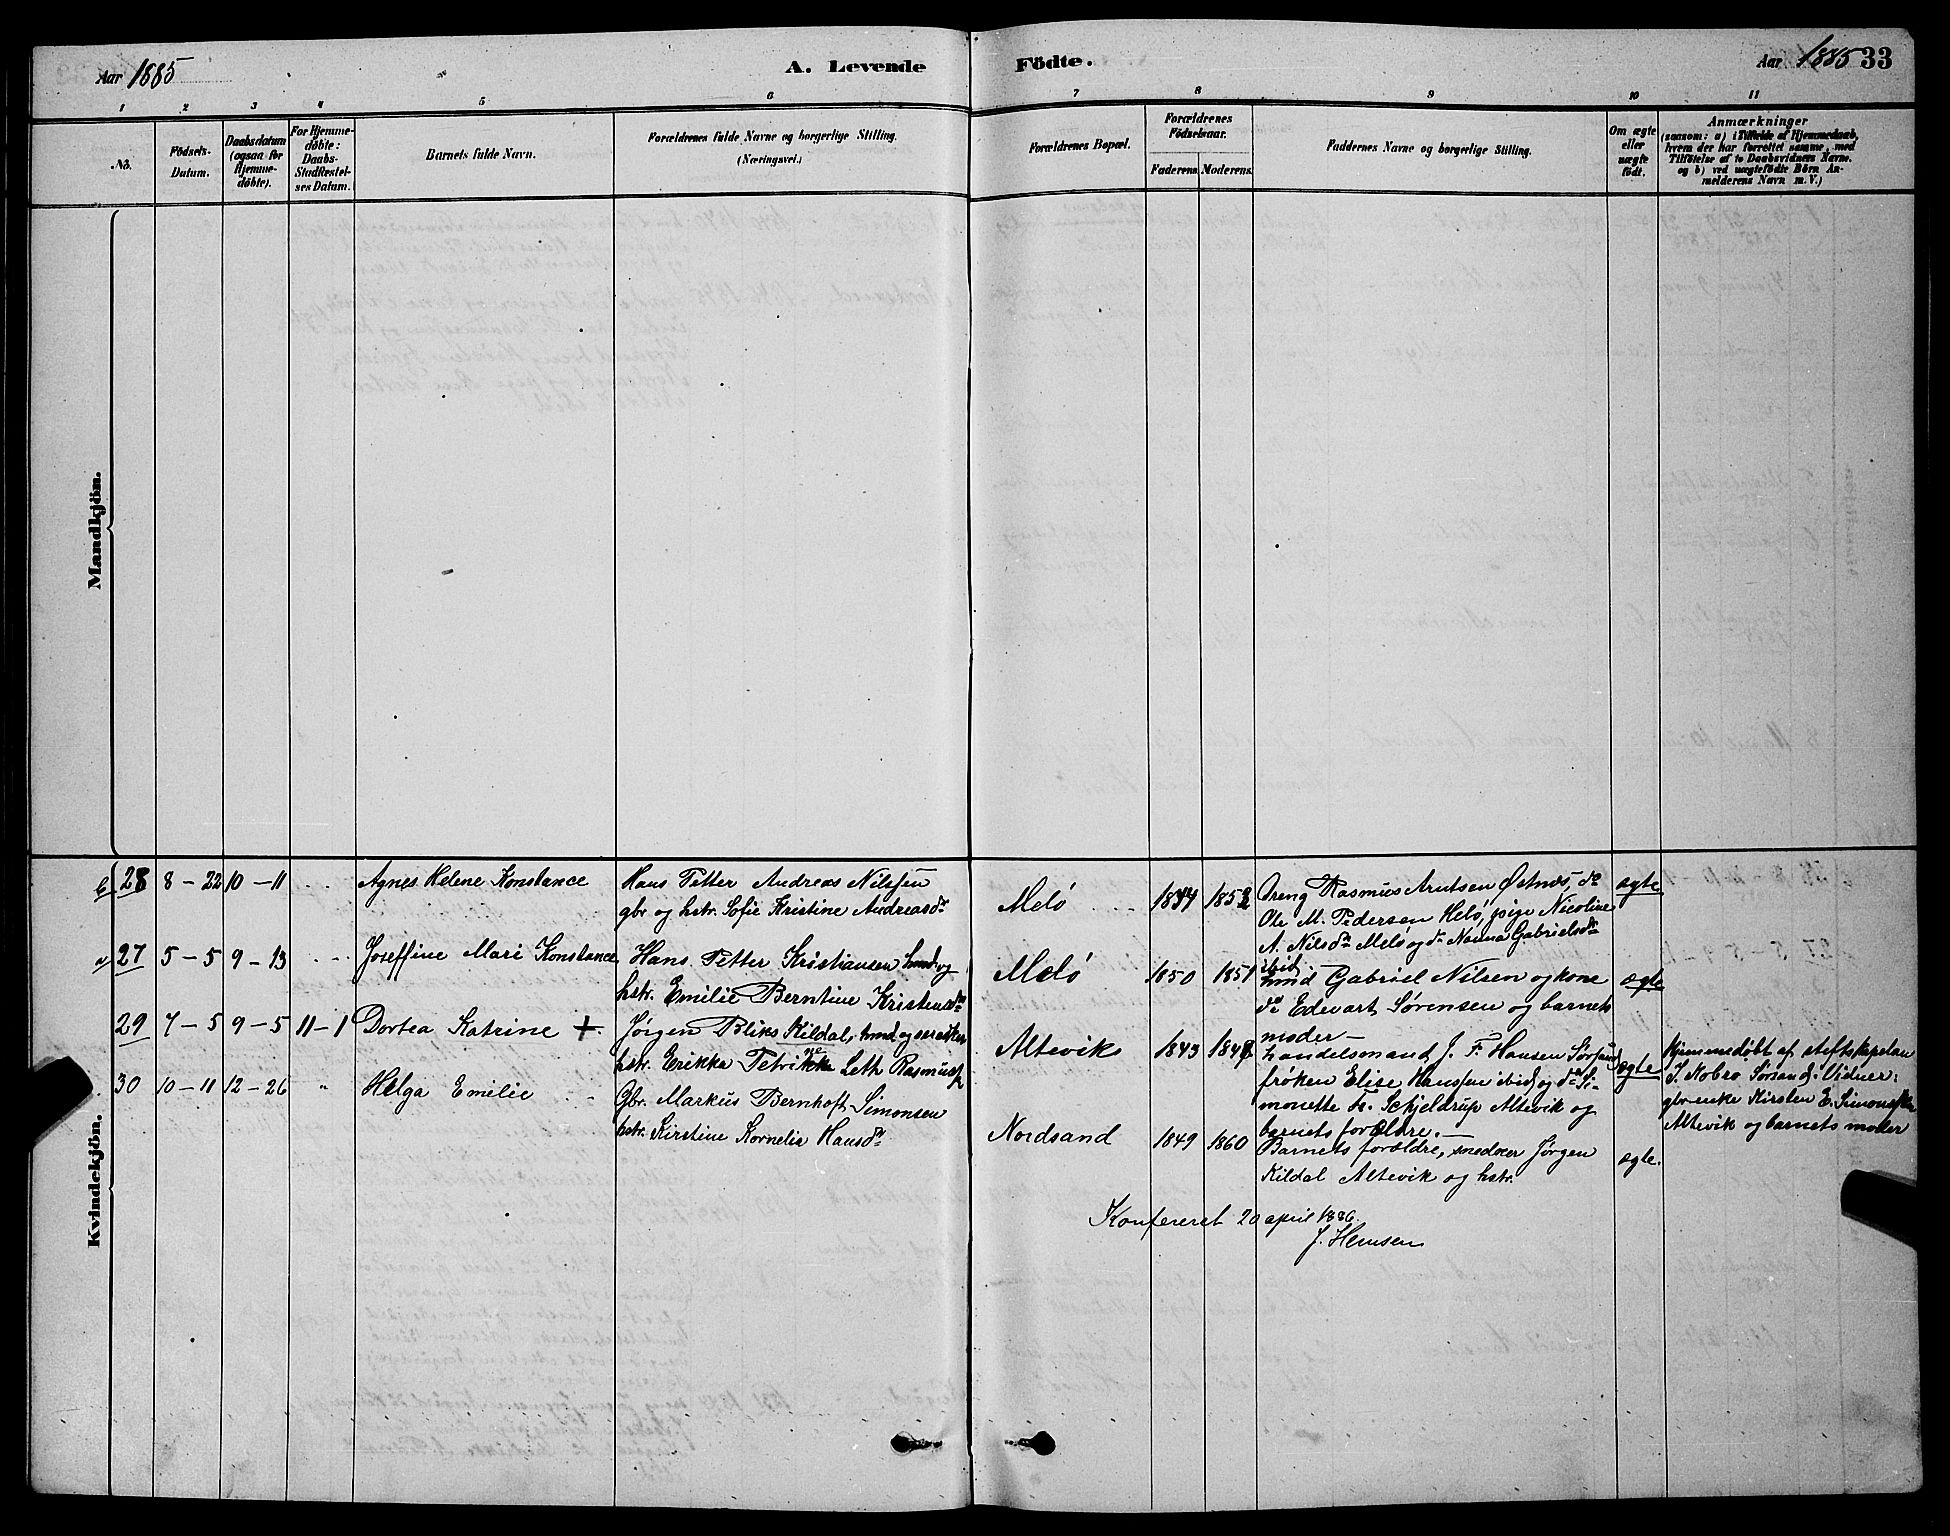 Aar 1885
A. Levende
Födte.
Aar 1885 33
1 2 3 4 5 6 7 8 9 10 11
No.
Födsels-
Datum.
Daabsdatum
(ogsaa for
Hjemme-
döbte).
For Hjemme-
döbte:
Daabs-
Stadfæstel-
ses Datum.
Barnets fulde Navn.
Forældrenes fulde Navne og borgerlige Stilling.
(Næringsvei.)
Forældrenes Bopæl.
Forældrenes
Födselsaar.
Faderens. Moderens.
Faddernes Navne og borgerlige Stilling.
Om ægte
eller
uægte
födt.
Anmærkninger
(saasom: a) i Tilfælde af Hjemmedaab,
hvem der har forrettet samme, med
Tilföielse af to Daabsvidners Navne.
og b) ved uægtefödte Börn An-
melderens Navn m. V.)
Mandkjön.
Kvindekjön.
b, 28 8 – 22 10 – 11 Agnes Helene Konstance
Hans Petter Andreas Nilssen
gbr og hstr. Sofie Kristine Andreasdr
Melö 1852
Dreng Rasmus Arntsen Østnes, do
Ole M. Pedersen Melö, pige Nicoline
A. Nilsdr Melö og do Nanna Gabrielsdr
ibid
ægte
a, 27 5 – 5 9 – 13 Joseffine Mari Konstance
Hans Petter Kristiansen hmd og
hstr. Emilie Berntine Kristensdr
Melö 1850 1851
hmd Gabriel Nilsen og kone
do Edevart Sørensen og barnets
moder —
ægte
29 7 – 5 9 – 5 11 – 1 Dortea Katrine +
Jørgen Bliks Kildal, hmd og snedker
hstr. Erikka Petrikke Leth
Altevik 1843
handelsmand J. F. Hansen Sørsund
frøken Elise Hanssen ibid, og do Si-
monette Fr. Schjeldrup Altevik og
barnets forældre. —
ægte
Hjemmedøbt af stiftskapelan
J. Nobro Sørsand. Vidner:
gbr.enke Kirsten E.
Altevik og barnets moder
30 10 – 11 12 – 26 " Helga Emilie
Gbr. Markus Bernhoft Simonsen
hstr. Kirstine Kornelia Hansdr
Nordsand 1849 1860
Barnets forældre, snedker Jørgen
Kildal Altevik og hstr.
ægte.
Konfereret 20 april 1886.
J. Hemsen